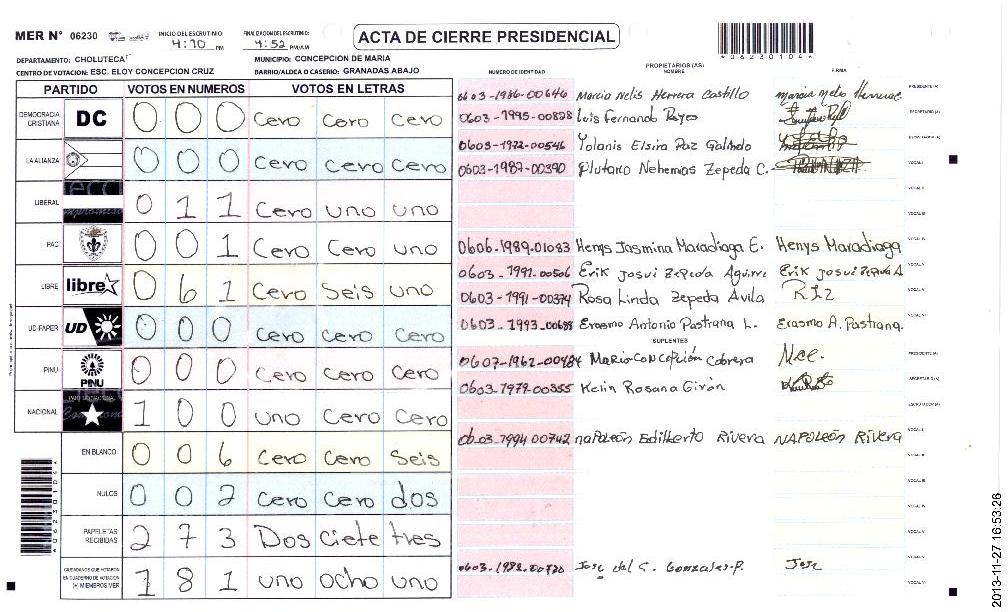 MER N° 06230
INICIO DEL ESCRUTINIO
4:10 PM
FINALIZACION DEL ESCRUTINIO:
4:52 PM/AM
ACTA DE CIERRE PRESIDENCIAL
*06230104*
DEPARTAMENTO: CHOLUTECA
MUNICIPIO: CONCEPCION DE MARIA
CENTRO DE VOTACION: ESC. ELOY CONCEPCION CRUZ
BARRIO/ALDEA O CASERIO: GRANADAS ABAJO
PARTIDO VOTOS EN NUMEROS VOTOS EN LETRAS
DEMOCRACIA CRISTIANA DC 0 0 0 Cero Cero Cero
LA ALIANZA 0 0 0 Cero Cero Cero
LIBERAL 0 1 1 Cero uno uno
PAC 0 0 1 Cero Cero uno
LIBRE libre 0 6 1 Cero Seis uno
UD-FAPER UD 0 0 0 Cero Cero Cero
PINU PINU 0 0 0 Cero Cero Cero
NACIONAL 1 0 0 uno Cero Cero
EN BLANCO 0 0 6 Cero Cero Seis
NULOS 0 0 2 Cero Cero dos
PAPELETAS RECIBIDAS 2 7 3 Dos Ciete tres
CIUDADANOS QUE VOTARON EN CUADERNO DE VOTACION (+) MIEMBROS MER 1 8 1 uno ocho uno
NUMERO DE IDENTIDAD PROPIETARIOS (AS) NOMBRE FIRMA
0603-1986-00646 Marcia Nelis Herrera Castillo PRESIDENTE (A)
0603-1995-00828 Luis Fernando Reyes SECRETARIO (A)
0603-1972-00546 Yolanis Elsira Paz Galindo
0603-1987-00390 Plutarco Nehemias Zepeda C.
0606-1989-01083 Henys Jasmina Maradiaga E. Henys Maradiaga
0603-1991-00506 Erik Josui Zepeda Aguirre Erik Josui Zepeda A
0603-1991-00374 Rosa Linda Zepeda Avila RLZ
0603-1993-00688 Erasmo Antonio Pastrana L. Erasmo A. Pastrana.
SUPLENTES
0607-1962-00484 Mario Concepción Cabrera
0603-1979-00355 Kelin Rosana Girón
0603-1994 00742 napoleón Edilberto Rivera NAPOLEÓN RIVERA
0603-1988-00720 Jose del C. Gonzales P. Jose
2013-11-27 16:53:26